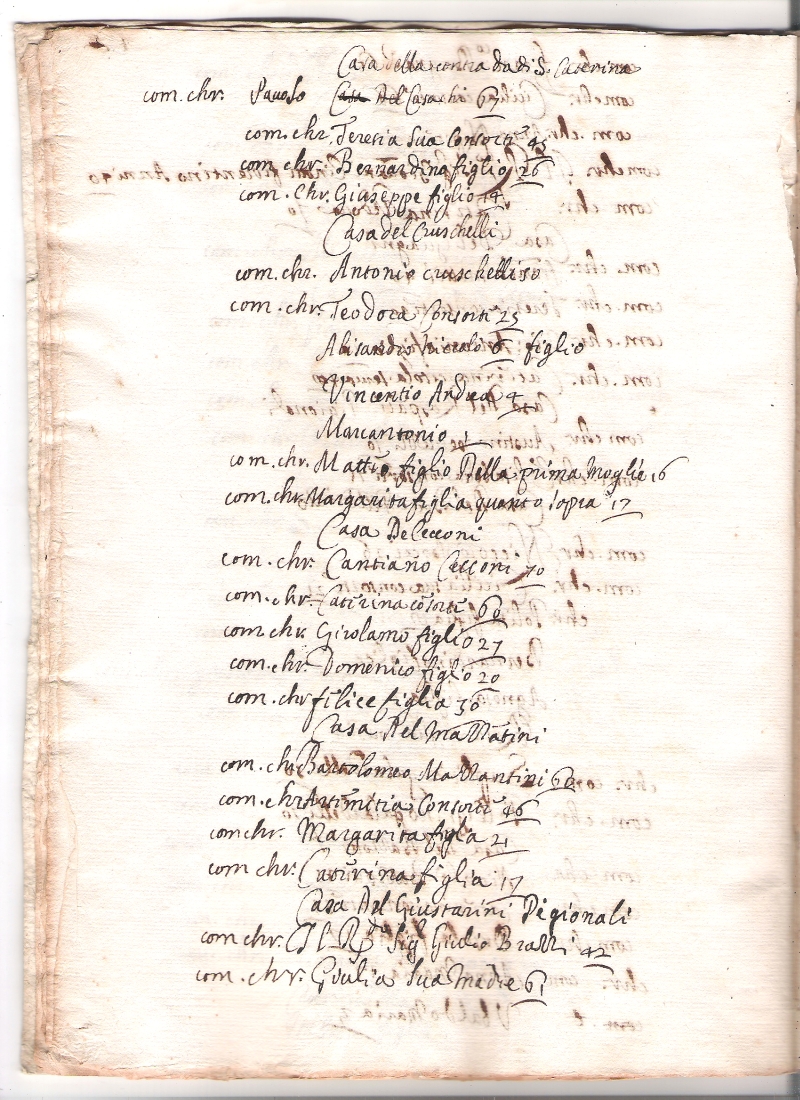 Casa della contra da di S. Caterina
com. chr. Pauolo Casa Del Casachi 67
com. chr. Teresia Sua Consorte 45
com. chr. Bernardina figlio 26
com. Chr. Giuseppe figlio 14
Casa del Cruschelli
com. chr. Antonio cruschelli 50
com. chr. Teodora Consorte 25
Niccolò 6 figlio
Vincentio Andrea 4
Marcantonio 1
com. chr. Matteo figlio Della prima Moglie 16
com. chr. Margarita figlia quanto sopra 17
Casa De Cecconi
com. chr. Cantiano Cecconi 70
com. chr. Caterina cōsorte 60
com. chr. Girolamo figlio 27
com. chr. Domenico figlio 20
com. chr. filice figlia 30
Casa Del Mazzatini
com. chr. Bartolomeo Mazzantini 60
com. chr. Artimitia Consorte 46
com chr. Margarita figla 21
com chr. Caterina figlia 17
Casa Del Giustarini Pigionali
com chr. Il Rdo Sig Giulio Brazzi 42
com. chr. Giulia Sua Madre 61